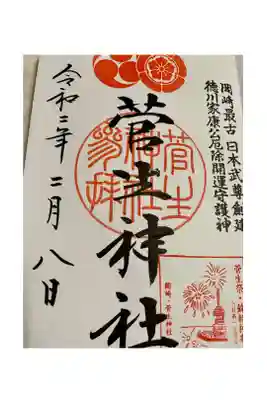 岡崎最古 日本武尊創建
徳川家康公厄除開運守護神
菅生神社
令和二年二月八日
菅生
岡崎・菅生神社